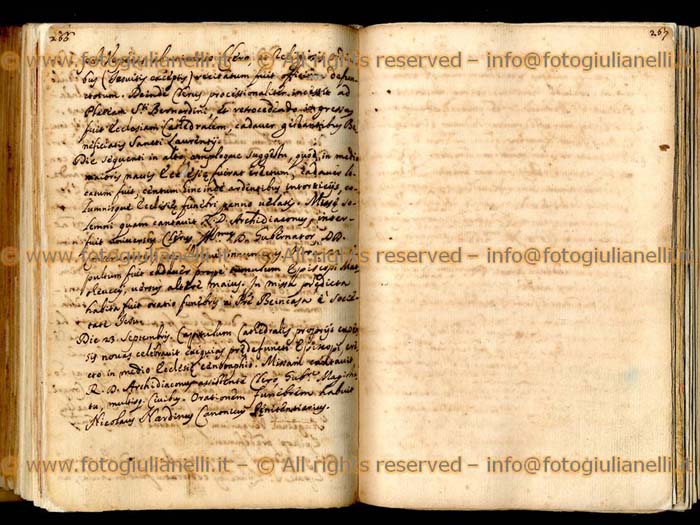 266
267
© www.fotogiulianelli.it – © All rights reserved – info@fotogiulianelli.it – ©
bus (Jesuitis exceptis) recitatum fuit officium defun-
ctorum. Deinde Clerus processionaliter incessit ad
Plateam Sti Bernardini, et retrocedendo ingressus
fuit Ecclesiam Cathedralem, cadaver gestantibus Be-
neficiatis Sancti Laurentij.
Die sequenti in alto, amploque suggestu, quod in medio
maioris navis Ecclesiæ fuerat erectum, cadaver lo-
catum fuit, centum hinc inde ardentibus intorticijs, co-
lumnisque Ecclesiæ funebri panno velatis. Missæ so-
lemni quam cantavit R. D. Archidiaconus, inter-
fuit universus Clerus, Gubernator, DD.
© www.fotogiulianelli.it – © All rights reserved – info@fotogiulianelli.it – ©
pultum fuit cadaver prope tumulum Episcopi
versus altare maius. In missa prædicta
habita fuit oratio funebris a Pre Beincasa è Socie-
tate Jesu.
Die 23 Septembris Capitulum Cathedralis proprijs expen-
sis novas celebravit exequias prædefuncti Episcopi, ere-
cto in medio Ecclesiæ cenotaphio. Missam cantavit
R. D. Archidiaconus assistente Clero, Gubre, Magistra-
tu, multisq. Civibus. Orationem funebrem habuit
Nicolaus Nardinus Canonicus Penitentiarius.
© www.fotogiulianelli.it – © All rights reserved – info@fotogiulianelli.it – ©